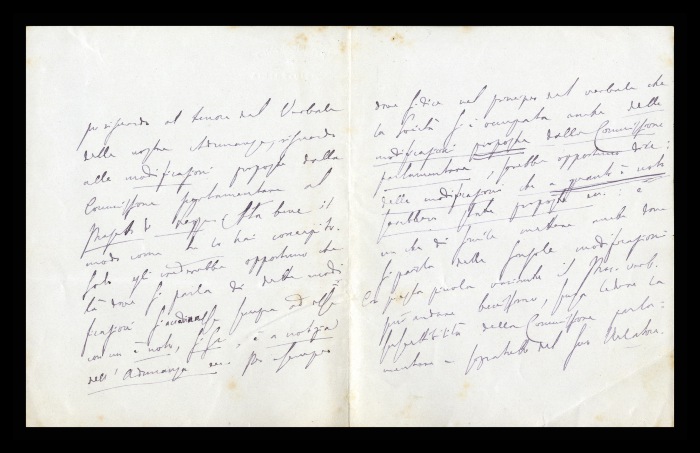 riguardo al tenore del Verbale
della nostra Adunanza, riguardo
alle modificazioni proposte dalla
Commissione parlamentare al
Sta bene il
modo come lo hai concepito.
Solo egli vedrebbe opportuno che
là dove si parla di dette modi
ficazioni si sempre ad esse
con un è noto, si sa, è a notizia
dell' Adunanza ec. Per esempio
dove si dice nel principio del verbale che
la Società si è occupata anche delle
modificazioni proposte dalla Commissione
parlamentare, sarebbe opportuno dire:
delle modificazioni che a quanto è noto
sarebbero state proposte ec.: e
un che di simile mettere anche dove
si parla delle singole modificazioni.
Con questa piccola variante il Proc. verb.
può andare benissimo, senza ledere la
suscettibilità della Commissione parla-
mentare e soprattutto del suo Relatore.